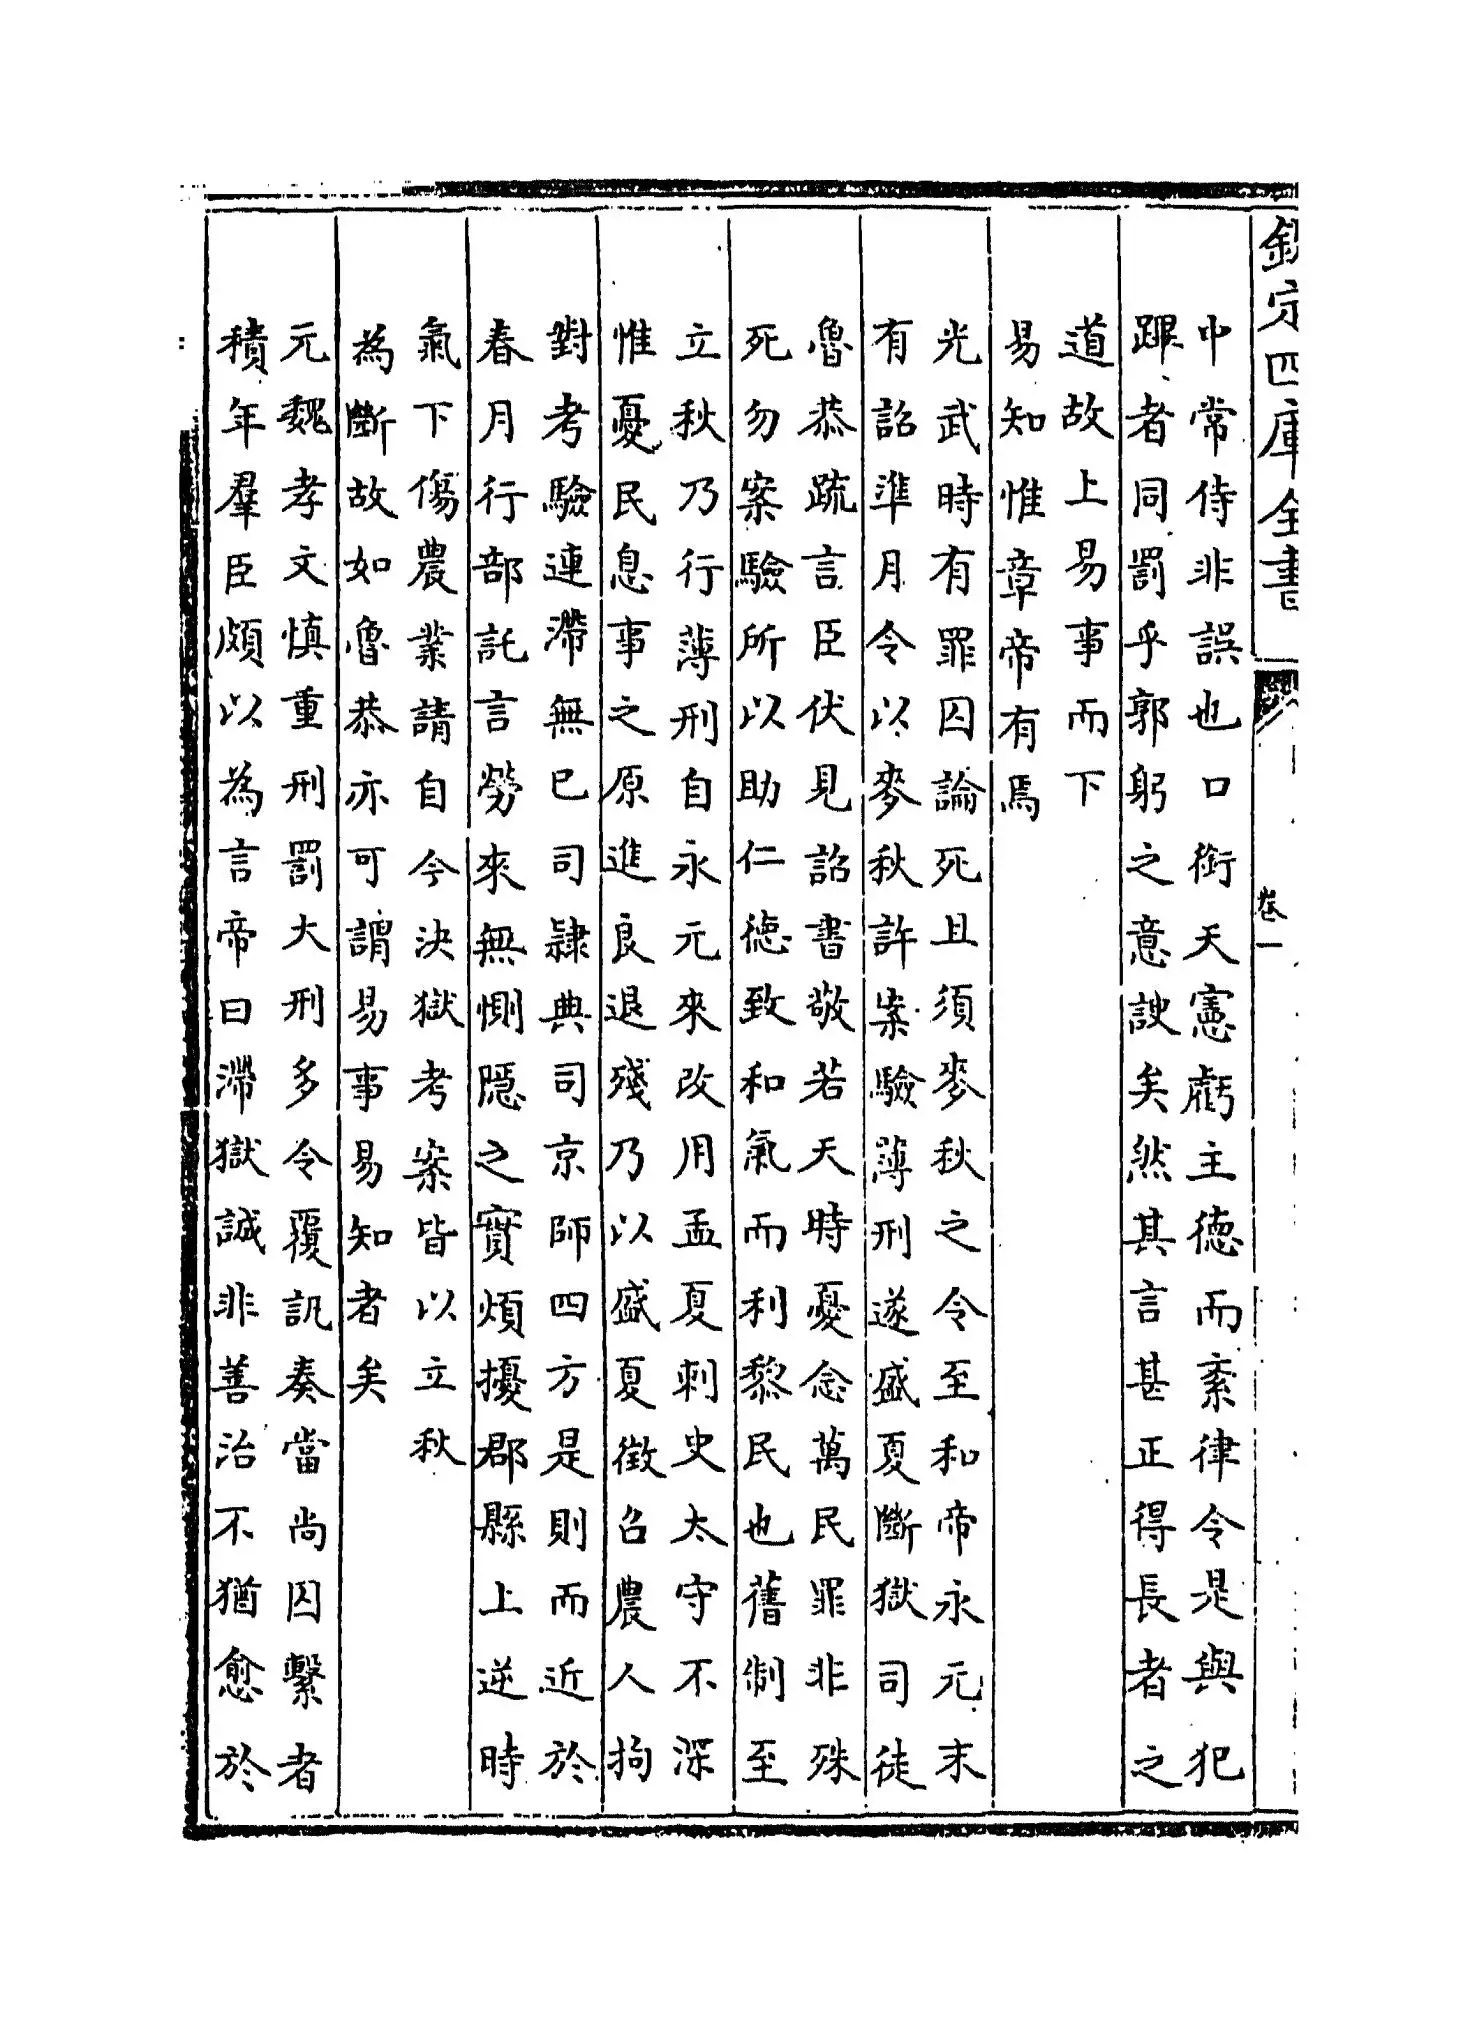 欽定四庫全書
卷一
中常侍非誤也口銜天憲虧主德而紊律令是與犯
蹕者同罰乎郭躬之意諛矣然其言甚正得長者之
道故上易事而下
易知惟章帝有焉
光武時有罪囚論死且須麥秋之令至和帝永元末
有詔準月令以麥秋許案驗薄刑遂盛夏斷獄司徒
魯恭疏言臣伏見詔書敬若天時憂念萬民罪非殊
死勿案驗所以助仁德致和氣而利黎民也舊制至
立秋乃行薄刑自永元來改用孟夏刺史太守不深
惟憂民息事之原進良退殘乃以盛夏徵召農人拘
對考驗連滯無已司隸典司京師四方是則而近於
春月行部託言勞來無惻隱之實煩擾郡縣上逆時
氣下傷農業請自今決獄考案皆以立秋
為斷故如魯恭亦可謂易事易知者矣
元魏孝文慎重刑罰大刑多令覆訊奏當尚囚繫者
積年羣臣頗以為言帝曰滯獄誠非善治不猶愈於